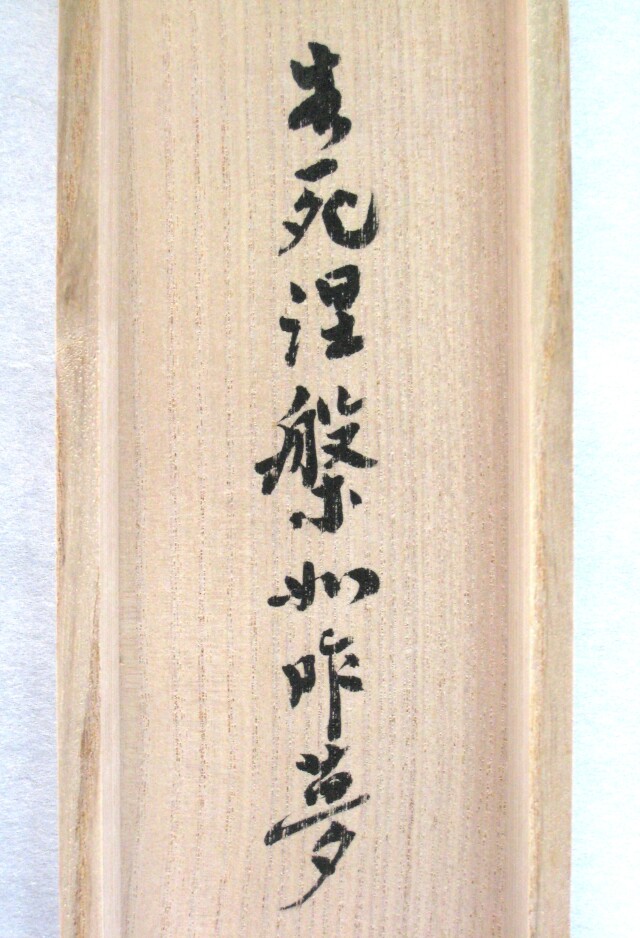 生死涅槃如昨夢